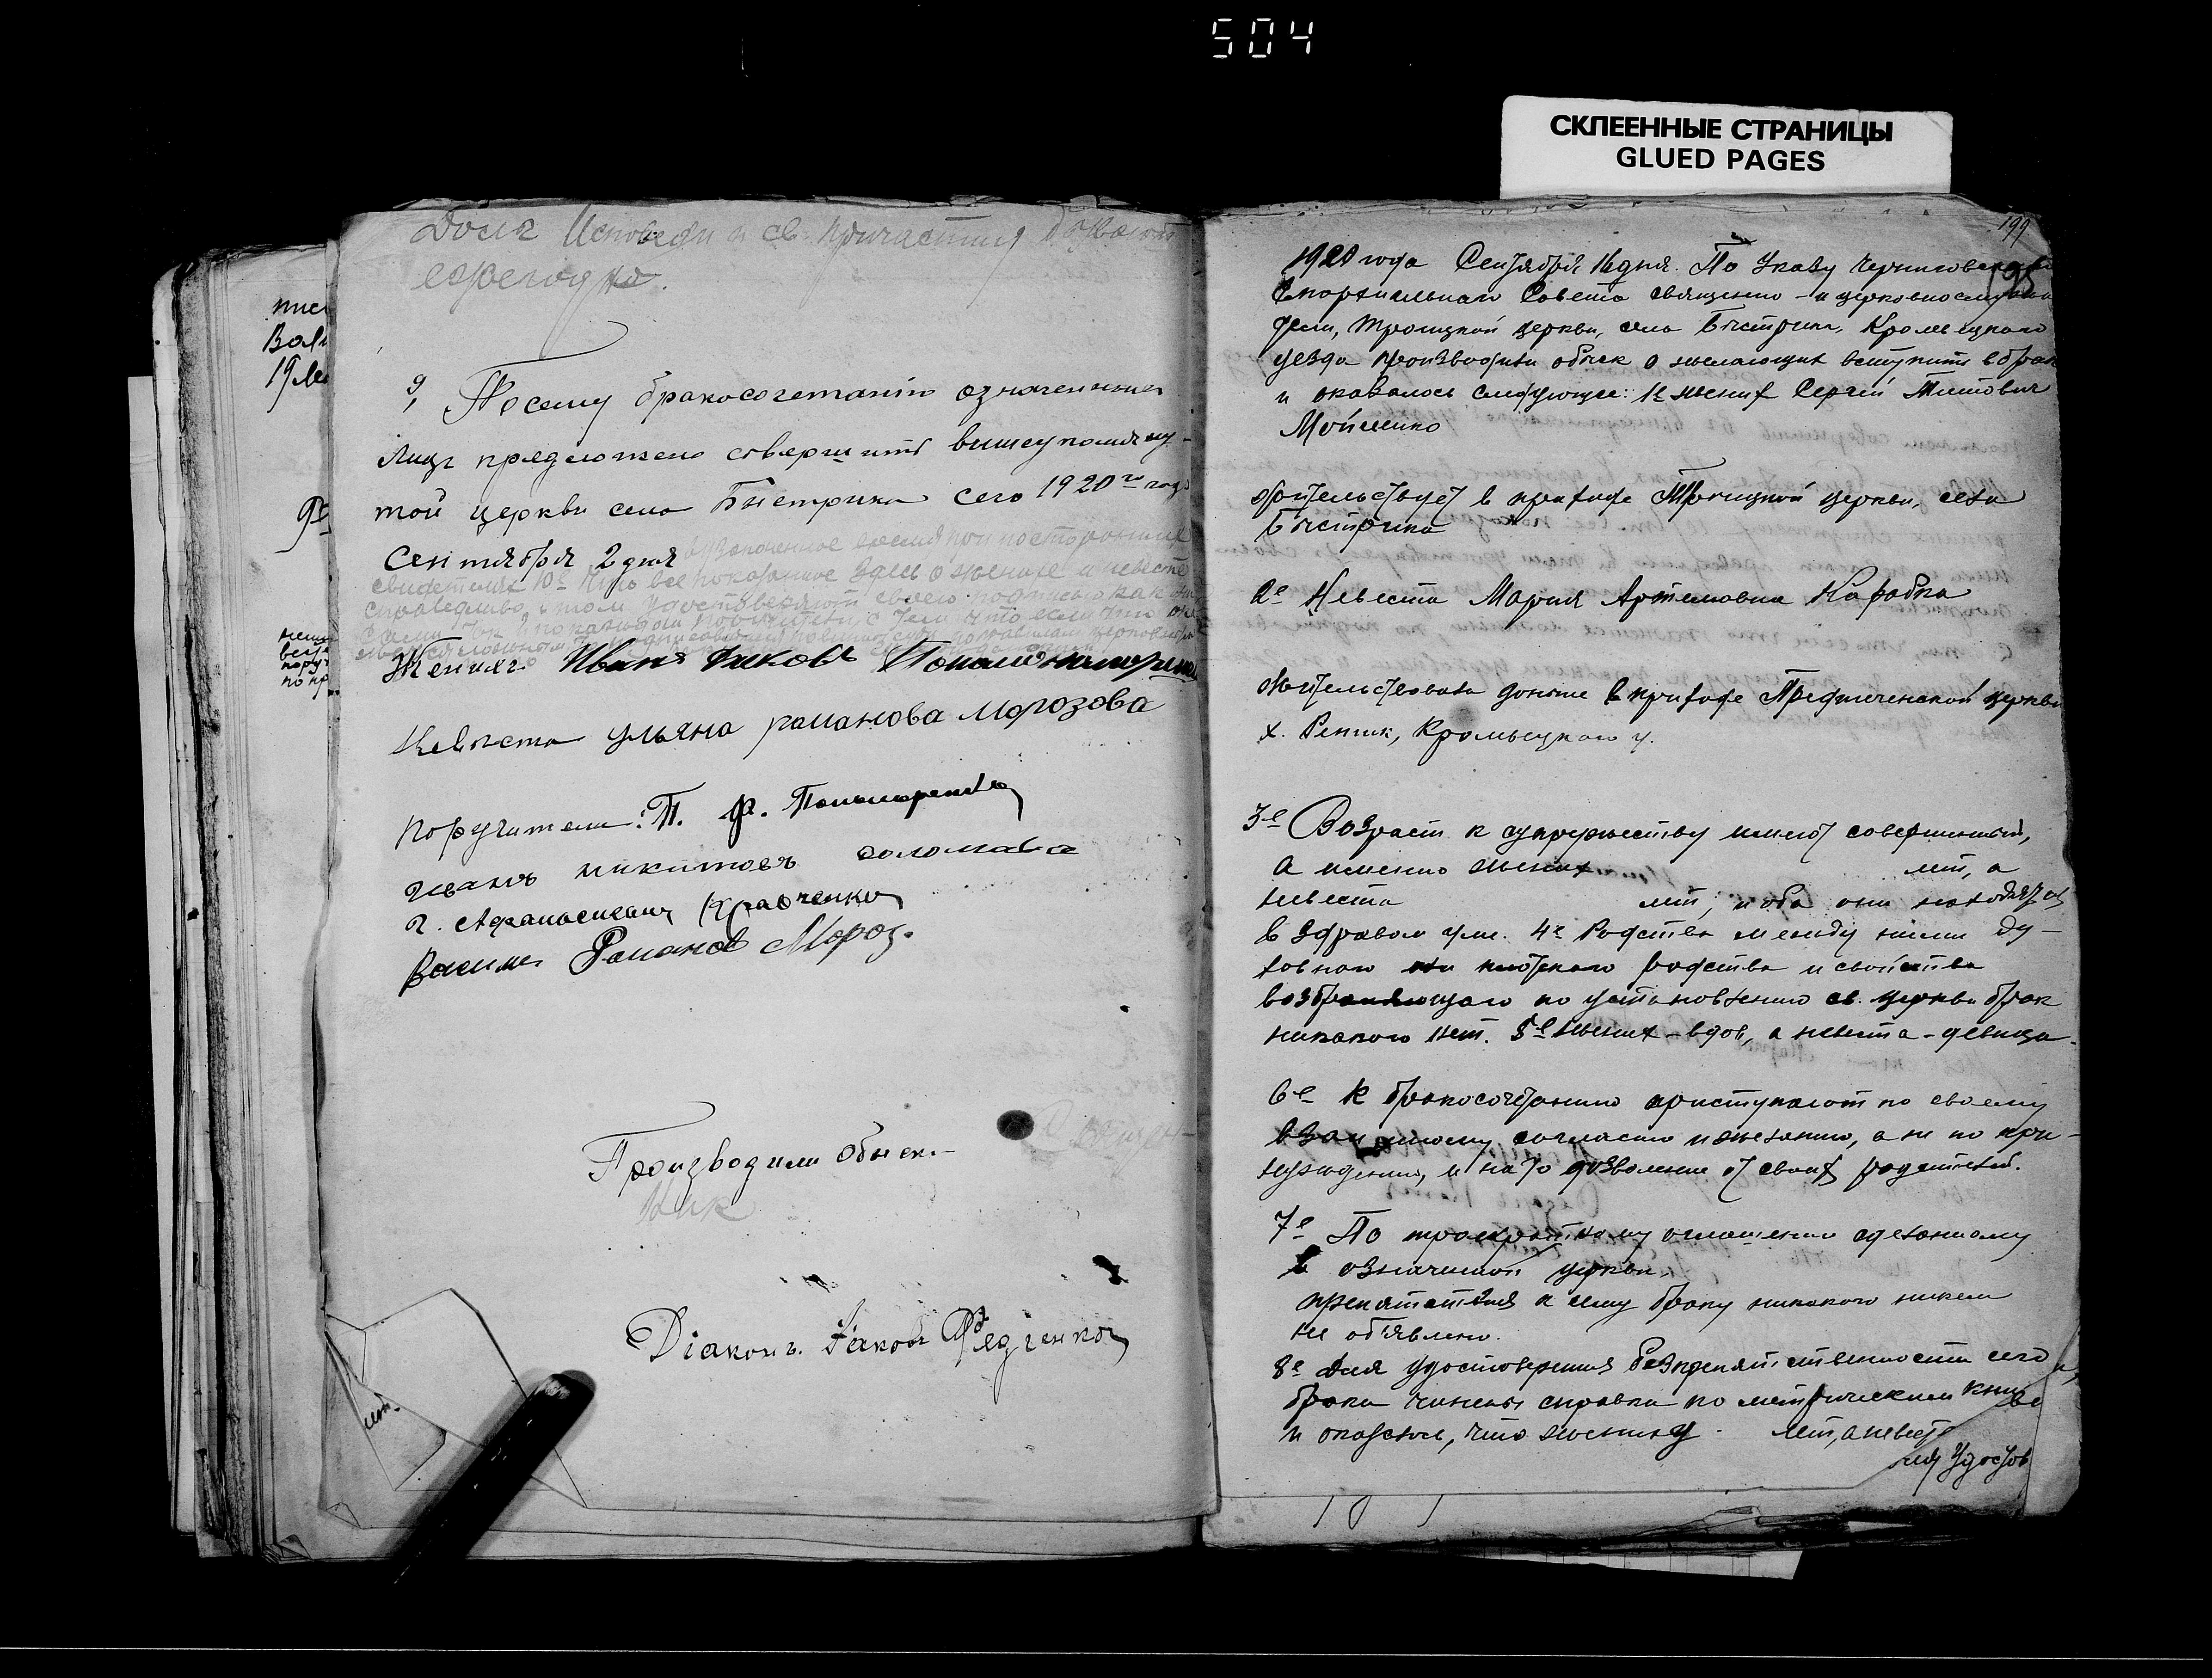 504
СКЛЕЕННЫЕ СТРАНИЦЫ
GLUED PAGES
Долг Исповеди и св. причастия
ежегодно.
9, Посему бракосочетанію означенных
лицъ предложено совершить вышеупомяну-
той церкви села Быстрика сего 1920 го года
Сентября 2 дня в узаконенное время при посторонних
свидетелях 10е Что все показанное здесь о женихе и невесте
справедливо, в том удостоверяют своею подписью как
сами так и по каждом поручители с тем что если что
Женихъ Иванъ
Невеста ульяна романова морозова
Поручители: П. Ф. Пономаренко
иванъ никитовъ
Г. Афанасиевич Кравченко
Василий Романов Мороз.
Производили обыск.-
Ник
Діаконъ Іаковъ Федченко
пис
Вал
19 ле
9е
лет.
199
1920 года Сентября 16 дня. По Указу Черниговского
Епархиального Совета священно-и церковнослужи
тели, Троицкой церкви, села Быстрика, Кролевецкого
уезда производили обыск о желающих вступить в брак
и оказалось следующее: 1е жених Сергей Титович
Мойсеенко
жительствует в приходе Троицкой церкви, села
Быстрика
2е Невеста Мария Артемовна Карабка
жительствовала доныне в приходе Предтеченской церкви
х. Репик, Кролевецкого у.
3е Возраст к супружеству имеют совершенный,
а именно жених лет, а
невеста лет; и оба они находятся
в здравом уме. 4е Родства между ними ду-
ховного или плотского родства и свойства
возбраняющаго по установлению св. церкви брак
никакого нет. 5е Жених-вдов, а невеста-девица.
6е К бракосочетанию приступают по своему
взаимному согласию и желанию, а не по при-
нуждению, и на то дозволение от своих родителей.
7е По троекратному оглашению сделанному
в означенной церкви,
препятствия к сему браку никакого никем
не объявлено.
8е Для удостоверения безпрепятственности сего
брака чинена справка по метрическим книгам
и оказалось, что жениху лет, а невесте
для удостов